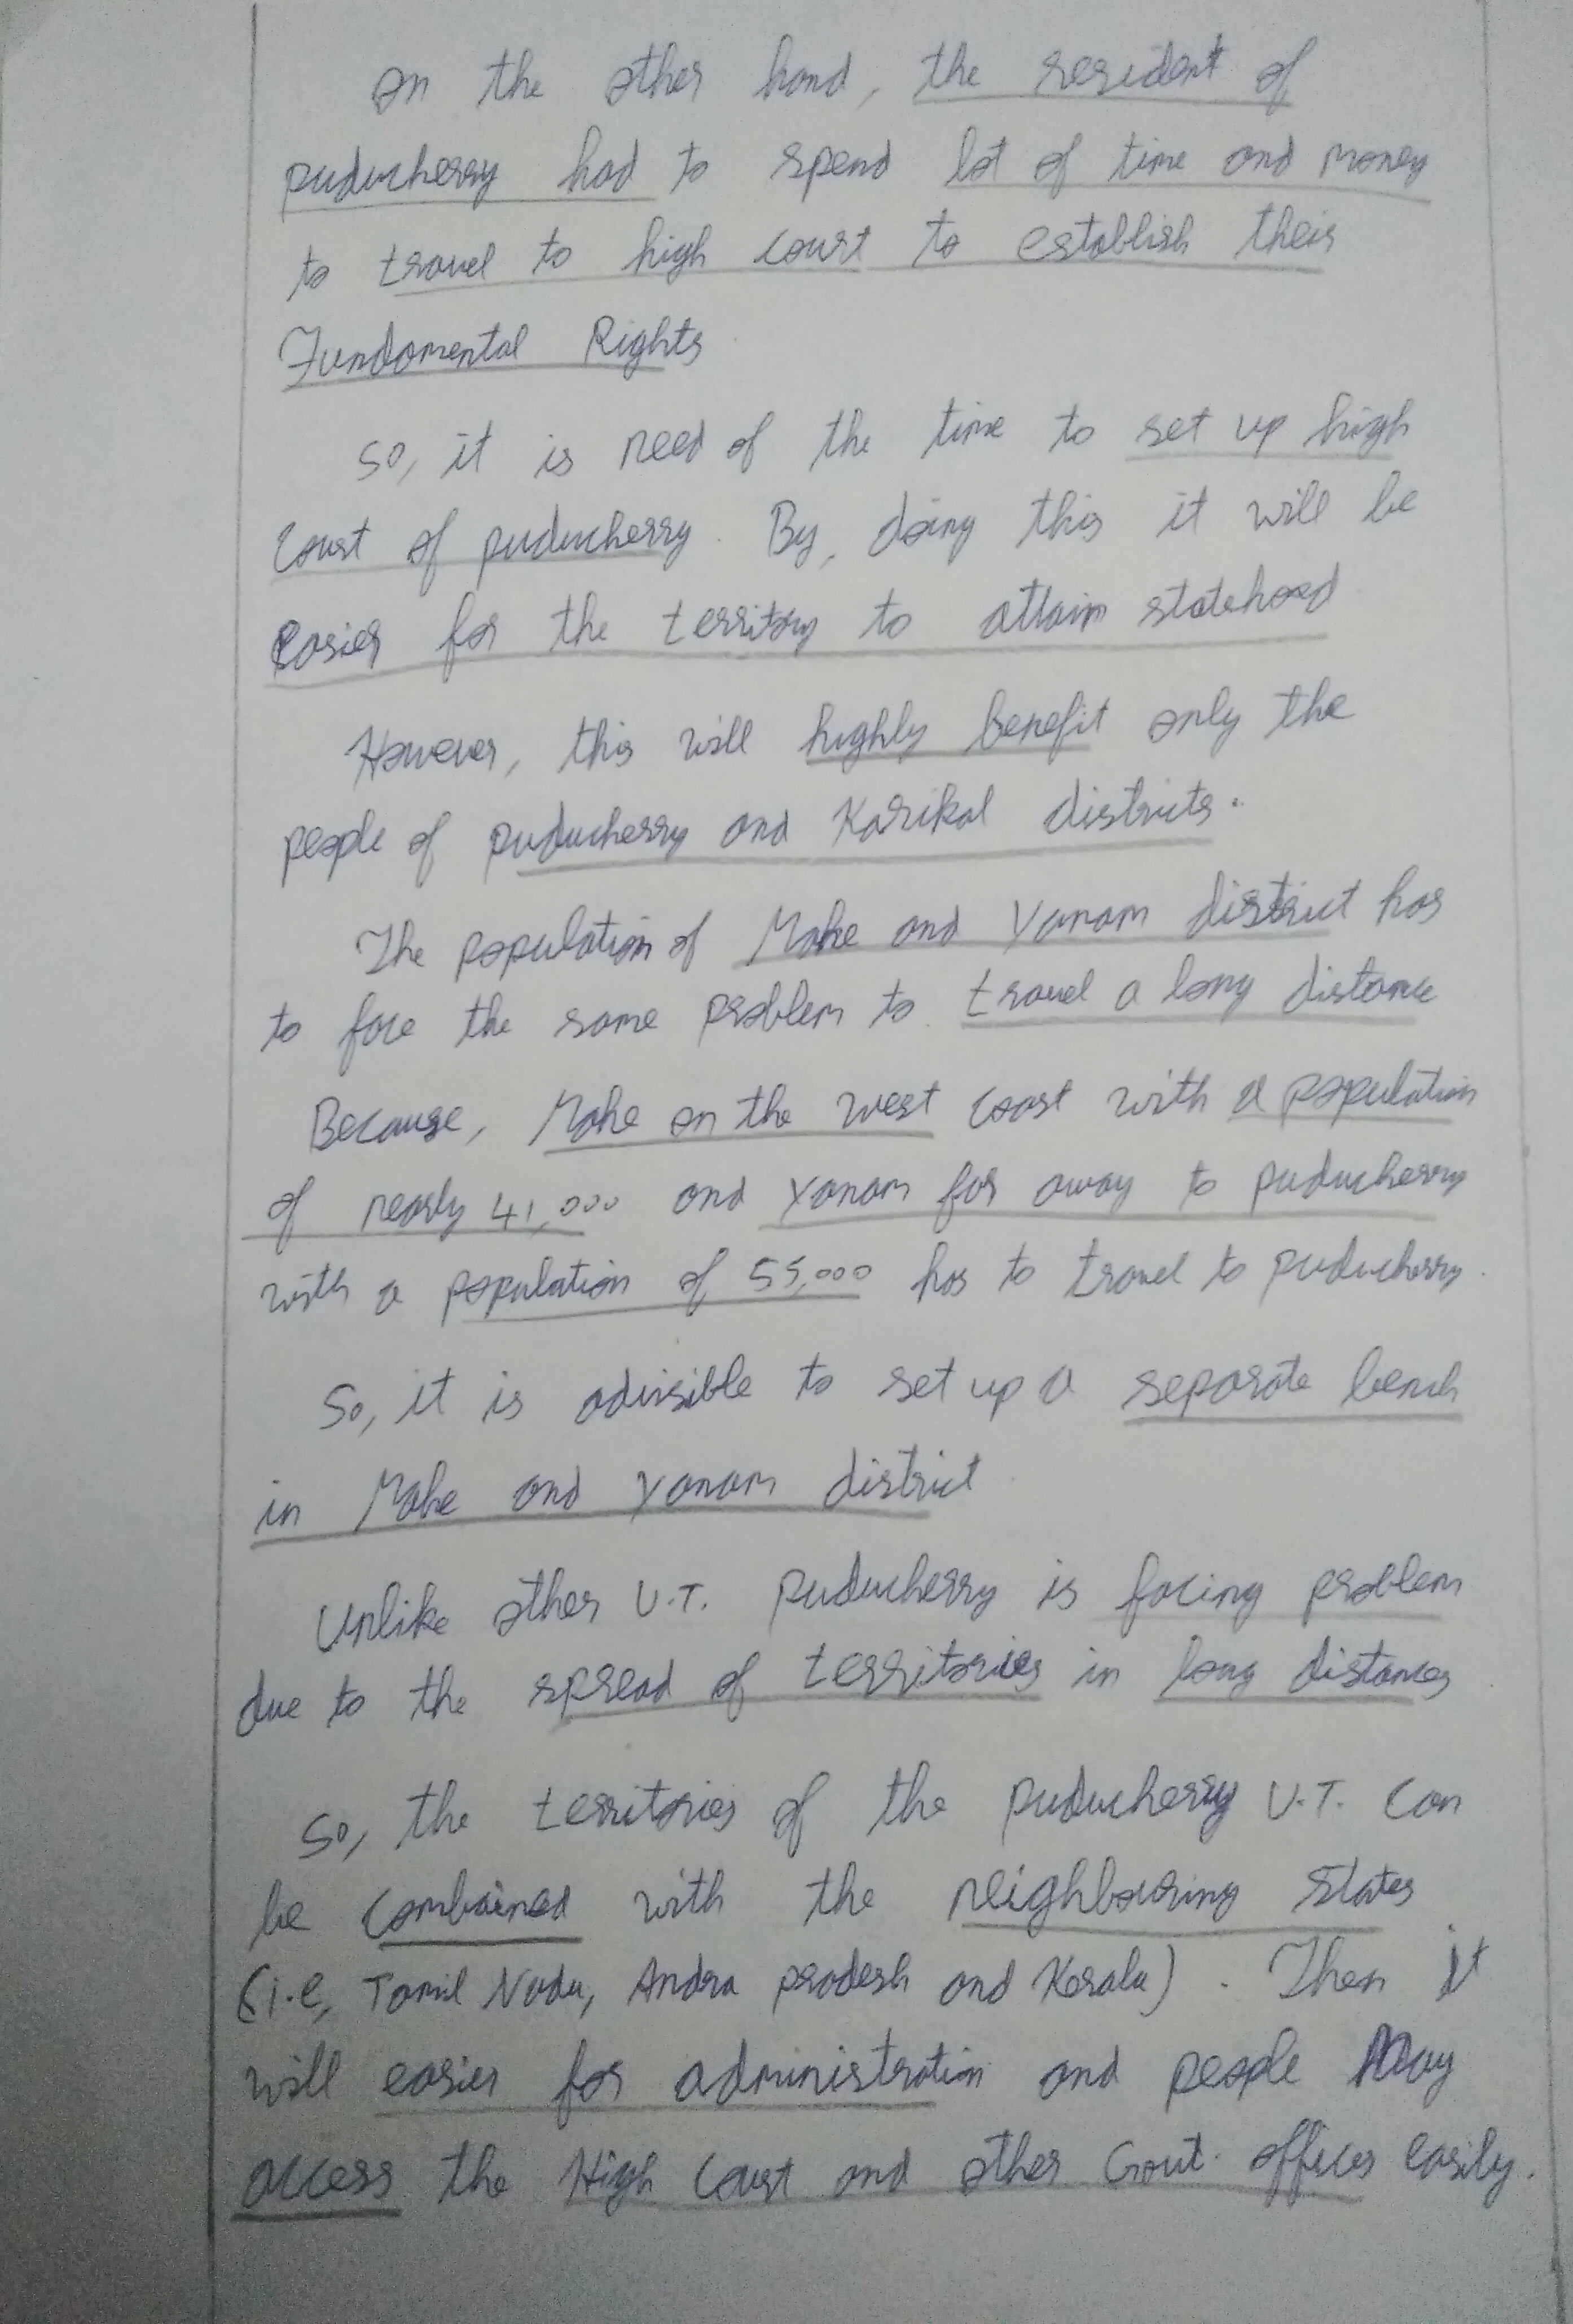 On the other hand, the resident of
puducherry had to spend lot of time and money
to travel to high court to establish their
Fundamental Rights
So, it is need of the time to set up high
court of puducherry. By, doing this it will be
easier for the territory to attain statehood
However, this will highly benefit only the
people of puducherry and Karikal districts.
The population of Mahe and Yanam district has
to face the same problem to travel a long distance
Because, Mahe on the west coast with a population
of nearly 41,000 and Yanam far away to puducherry
with a population of 55,000 has to travel to puducherry.
So, it is advisible to set up a separate bench
in Mahe and Yanam district
Unlike other U.T. Puducherry is facing problem
due to the spread of territories in long distances
So, the territories of the Puducherry U.T. can
be combained with the neighbouring States
(i.e, Tamil Nadu, Andra pradesh and Kerala). Then it
will easier for administration and people may
access the High Court and other Govt. offices easily.